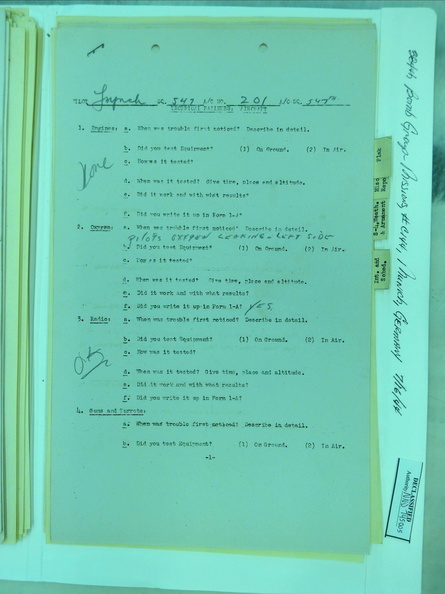 Lynch 547 A/C NO. 201 547th
1. Engines: a. When was trouble first noticed? Describe in detail.
b. Did you test Equipment? (1) On Ground. (2) In Air.
c. How was it tested?
d. When was it tested? Give time, place and altitude.
e. Did it work and with what results?
f. Did you write it up in Form 1-A?
2. Oxygen: a. When was trouble first noticed? Describe in detail.
PILOTS LEAKING - LEFT SIDE
b. Did you test Equipment? (1) On Ground. (2) In Air.
c. How was it tested?
d. When was it tested? Give time, place and altitude.
e. Did it work and with what results?
f. Did you write it up in Form 1-A? YES.
3. Radio: a. When was trouble first noticed? Describe in detail.
b. Did you test Equipment? (1) On Ground. (2) In Air.
c. How was it tested?
O.K.
d. When was it tested? Give time, place and altitude.
e. Did it work and with what results?
f. Did you write it up in Form 1-A?
4. Guns and Turrets:
a. When was trouble first noticed? Describe in detail.
b. Did you test Equipment? (1) On Ground. (2) In Air.
-1-
Flak
S-4, Weath.
& Armament
Int. and
Sched.
384th Bomb Group - Mission # 1 Munich Germany 7/16/44
DECLASSIFIED
Authority NND 745005